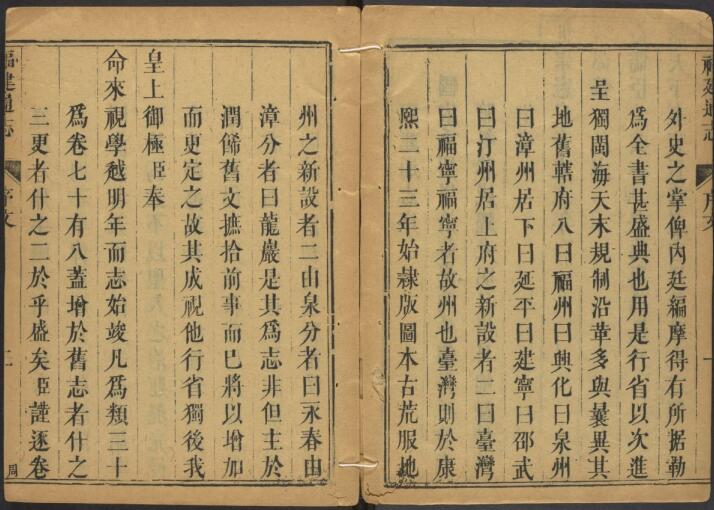 福建通志
序文
一
外史之掌俾內廷編摩得有所据勒
為全書甚盛典也用是行省以次進
呈獨閩海天末規制沿革多與曩異其
地舊轄府八曰福州曰興化曰泉州
曰漳州居下曰延平曰建寧曰邵武
曰汀州居上府之新設者二曰臺灣
曰福寧福寧者故州也臺灣則於康
熙二十三年始隸版圖本古荒服地
州之新設者二由泉分者曰永春由
漳分者曰龍巖是其為志非但主於
潤餙舊文摭拾前事而已將以增加
而更定之故其成視他行省獨後我
皇上御極臣奉
命來視學越明年而志始竣凡為類三十
為卷七十有八蓋增於舊志者什之
三更者什之二於乎盛矣臣謹逐卷
福建通志
序文
二
周